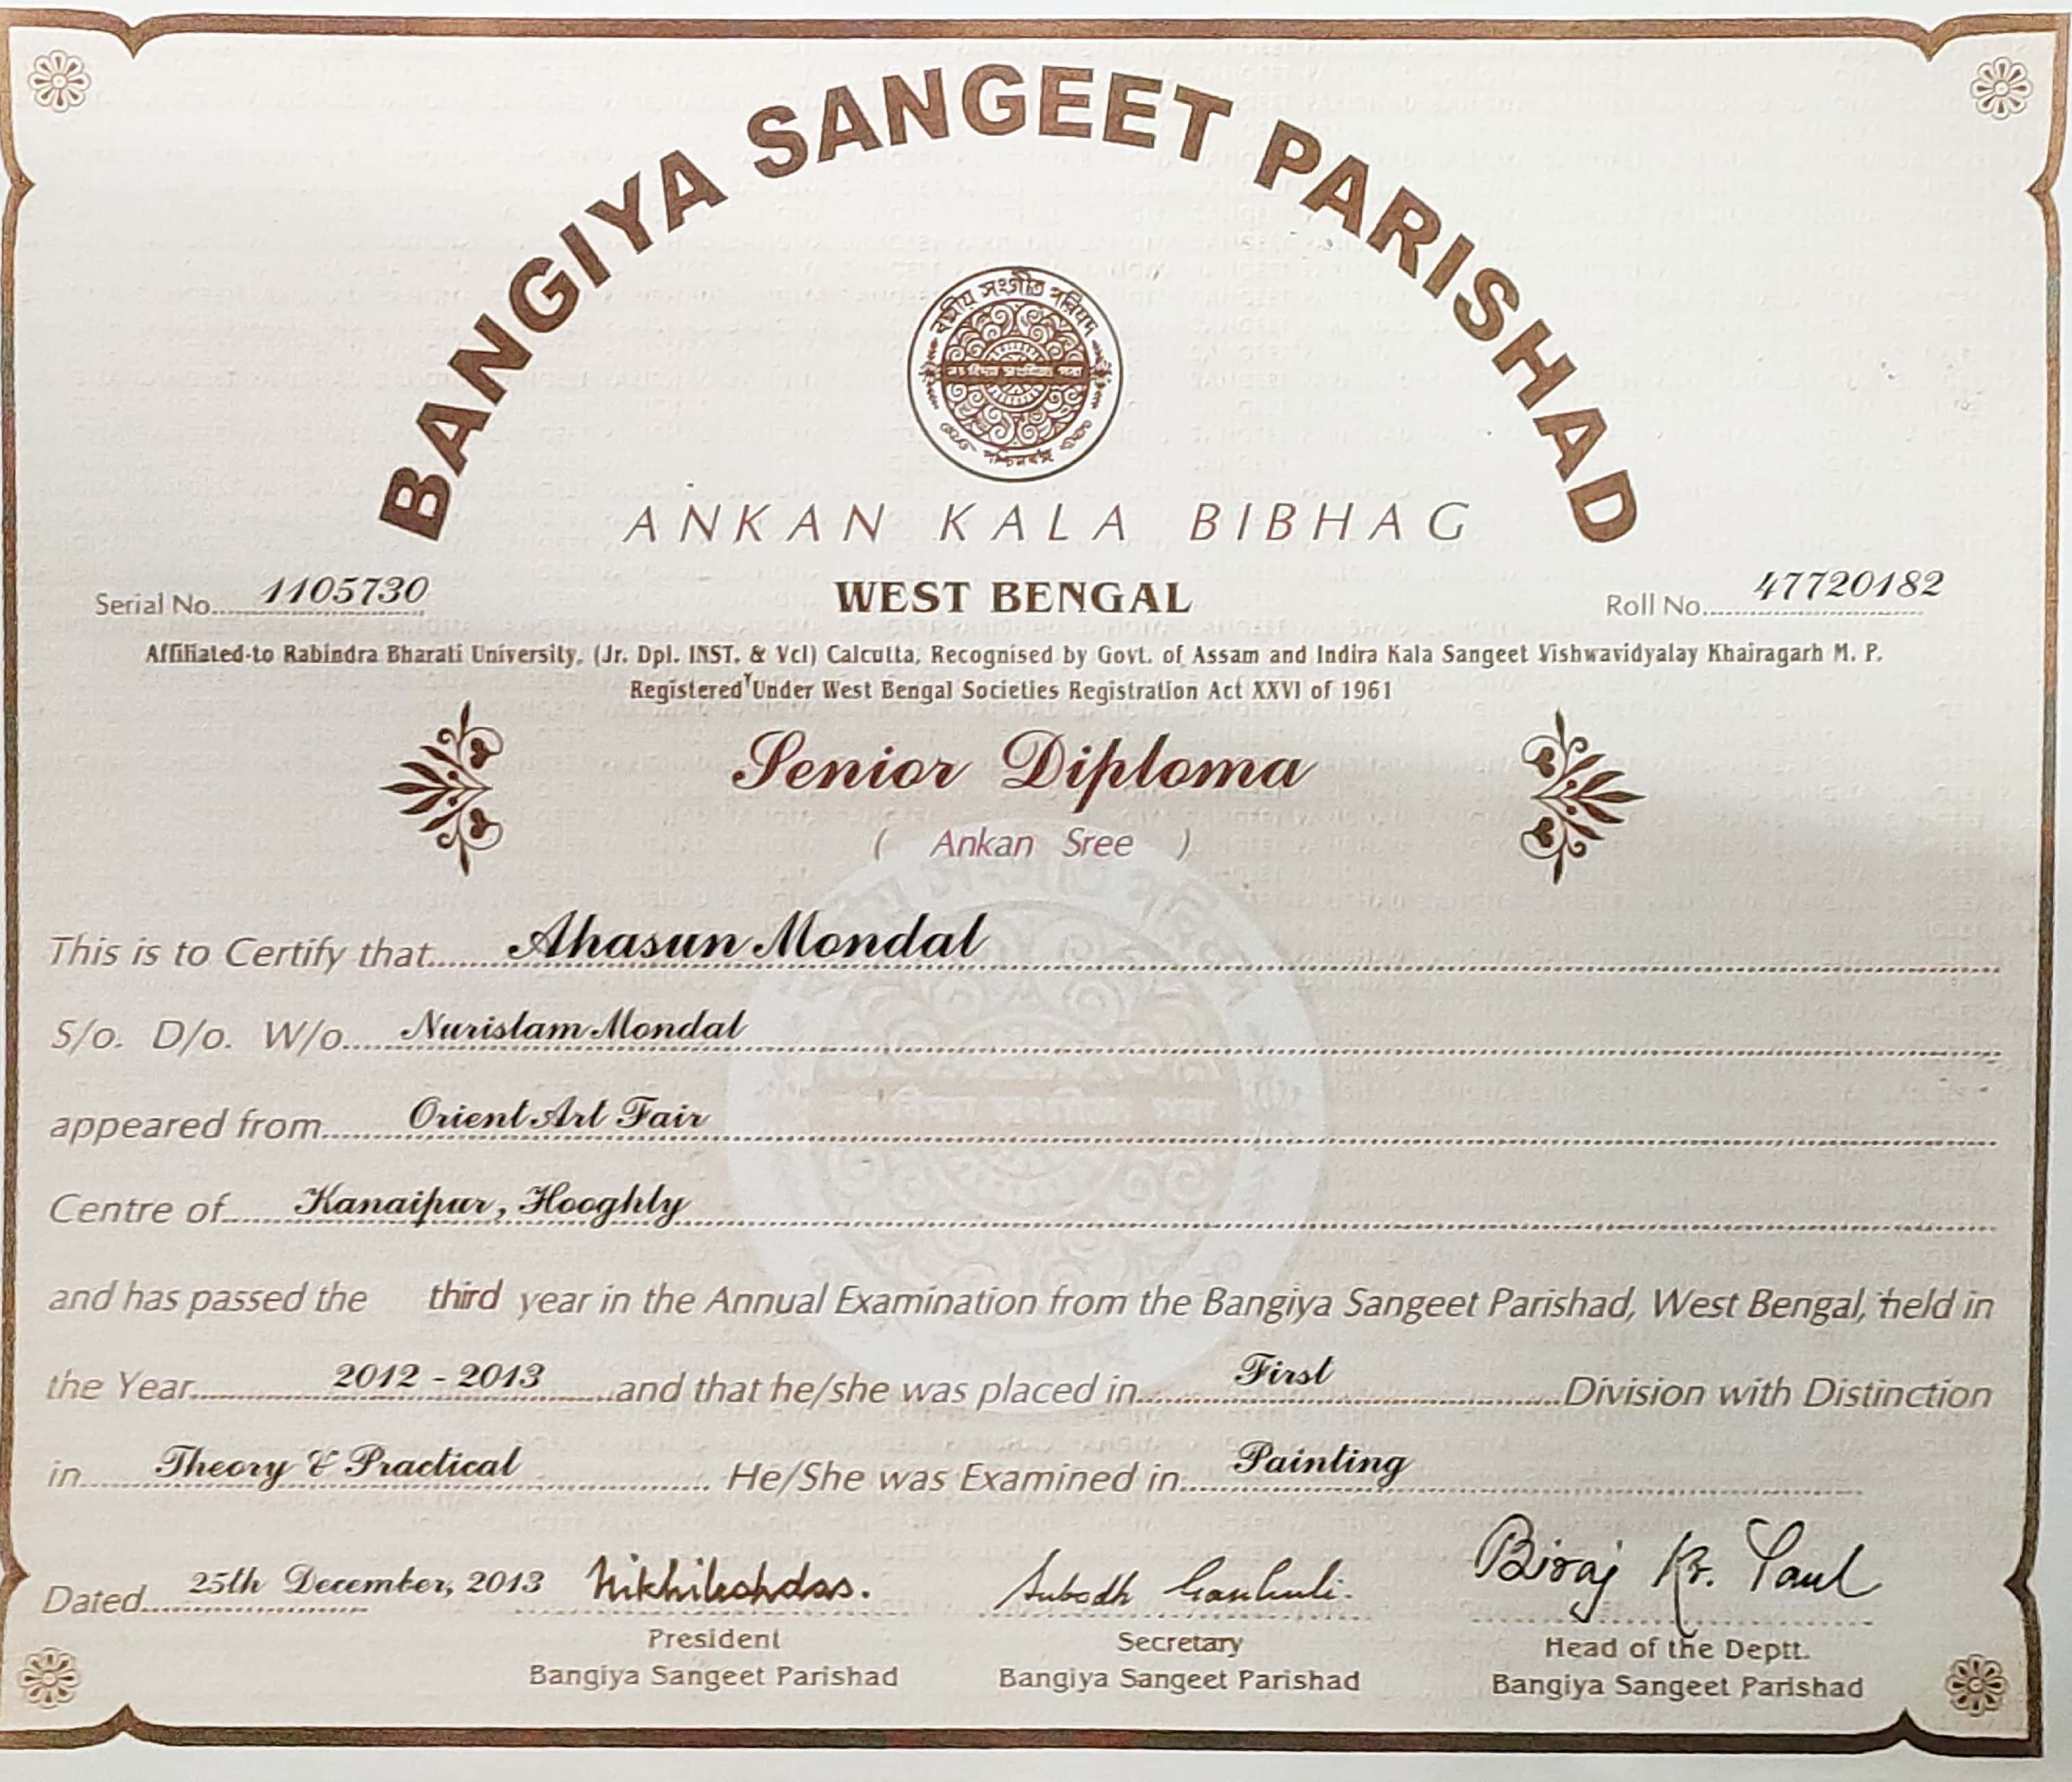 BANGIYA SANGEET PARISHAD
বঙ্গীয় সংগীত পরিষদ
পশ্চিমবঙ্গ
ANKAN KALA BIBHAG
Serial No. 1105730
WEST BENGAL
Roll No. 47720182
Affiliated-to Rabindra Bharati University, (Jr. Dpl. INST. & Vcl) Calcutta, Recognised by Govt. of Assam and Indira Kala Sangeet Vishwavidyalay Khairagarh M. P.
Registered Under West Bengal Societies Registration Act XXVI of 1961
Senior Diploma
( Ankan Sree )
This is to Certify that Ahasun Mondal
S/o. D/o. W/o. Nurislam Mondal
appeared from Orient Art Fair
Centre of Kanaipur, Hooghly
and has passed the third year in the Annual Examination from the Bangiya Sangeet Parishad, West Bengal, held in
the Year 2012 - 2013 and that he/she was placed in First Division with Distinction
in Theory & Practical He/She was Examined in Painting
Dated 25th December, 2013
Subodh Ganguli.
Biraj Kr. Paul
President
Bangiya Sangeet Parishad
Secretary
Bangiya Sangeet Parishad
Head of the Deptt.
Bangiya Sangeet Parishad